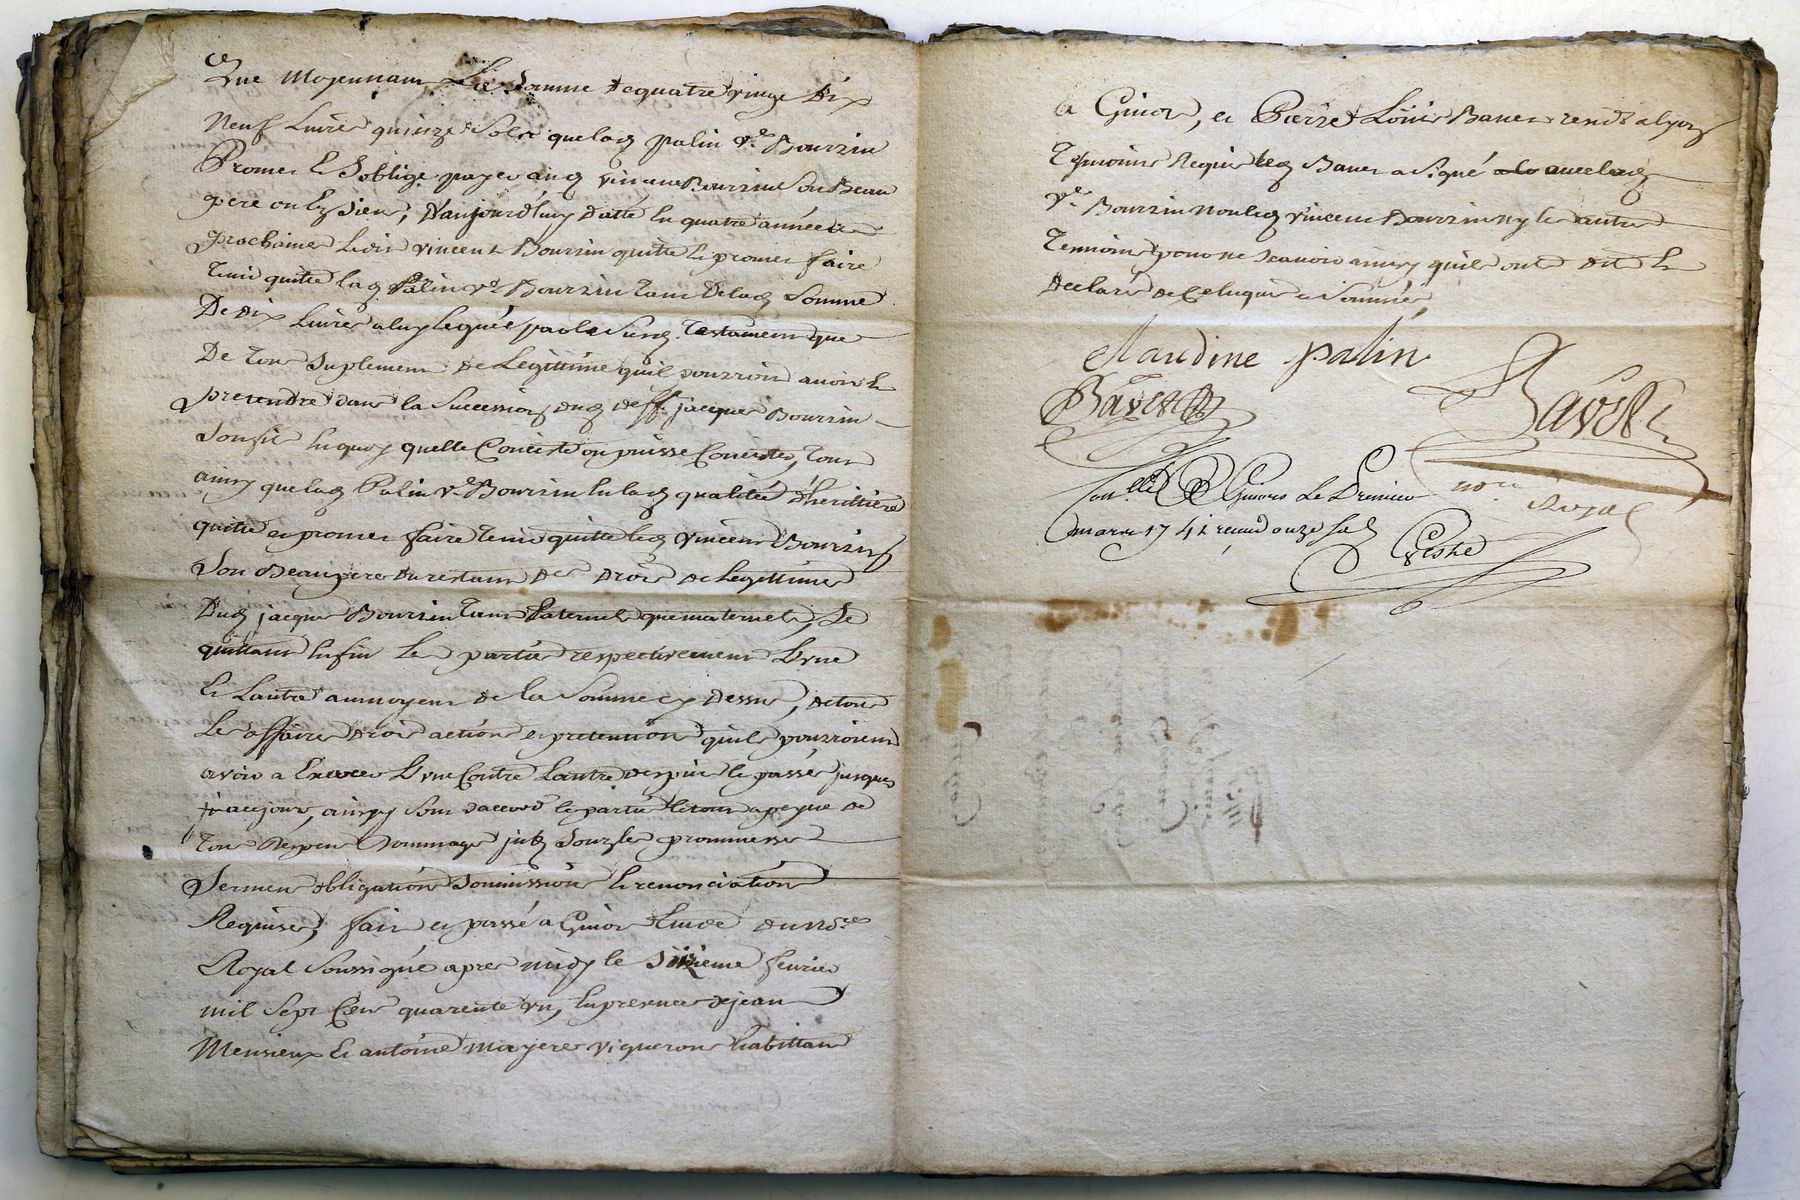 Que moyennant La Somme de quatre vingt dix
neuf Livres quinze Sols que lad palin ve. Bourrin
Promet & Soblige payer aud vincent Bourrin Son Beau
pere ou es Siens, D'aujourd'huy datte en quatre années
prochaines led vincent Bourrin quitte & promet faire
tenir quitte lad palin ve Bourrin tant de lad Somme
De dix Livres a luy leguée par le Susd. Testament que
De tout Suplement de Legittime qu'il pourroit avoir &
pretendre dans la Succession dud deff. jacques Bourrin
Son fils en quoy quelle Consiste ou puisse Consister, tout
ainsy que lad Palin ve Bourrin en lad qualitée d'herittiere
quitte et promet faire tenir quitte led vincent Bourrin
Son Beaupere du restant des Droits de Legittimes
Dud jacques Bourrin tant Paternels que maternels, Se
quittant enfin les parties respectivement L'vne
& Lautre aumoyent de la Somme cy dessus, de tous
Les affaires droits actions et pretentions quils pourroient
avoir a Exercer L'vne Contre Lautre despuis le passé jusques
a ce jour, ainsy Sont daccord les parties le tout a peyne de
tous despens dommages jnts Sous les prommesses
Serment obligations Soumissions & renonciations
Requises, fait et passé a Givors Etude du No.re
Royal Soussigné apres midy le Sixieme fevrier
mil Sept Cent quarente vn, En presence de jean
Mensieux & antoine mayere vignerons habittants
a Givors, et Pierre Loüis Bavet resnt a lyon
Temoins Requis led Bavet a Signé avec lad
ve. Bourrin non led vincent Bourrin ny les autres
Temoins pour ne Scavoir ainsy quils ont dit &
declaré de Ce enquis et Sommés
claudine palin
Bavet
Bavet
no.re
Royal
Con.llé a Givors Le Premier
mars 1741 receu onze sols